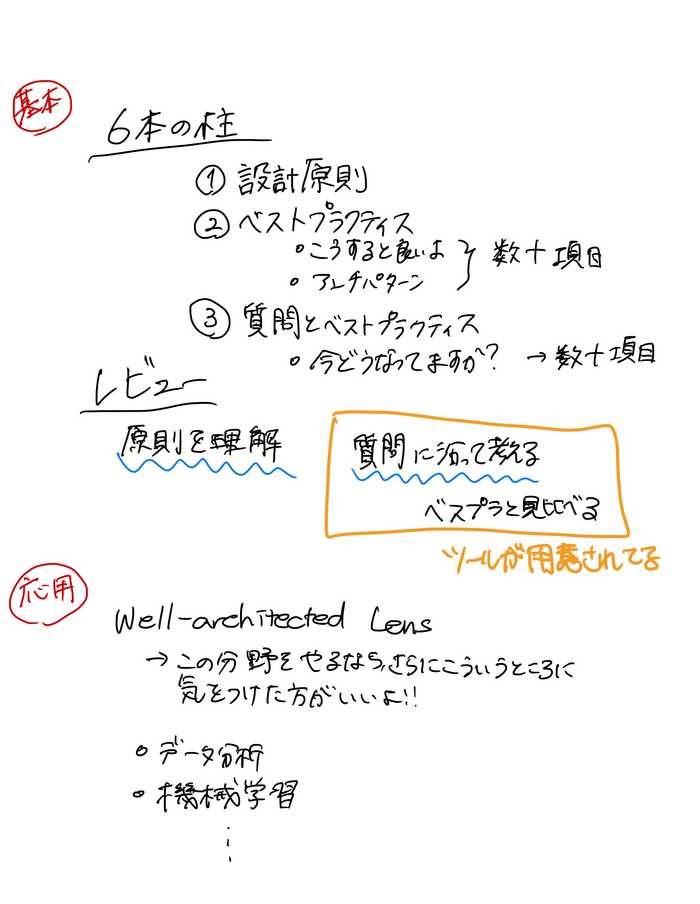 基本
6本の柱
① 設計原則
② ベストプラクティス
• こうすると良いよ
• アンチパターン
数十項目
③ 質問とベストプラクティス
• 今どうなってますか? → 数十項目
レビュー
原則を理解
質問に沿って考える
ベスプラと見比べる
ツールが用意されてる
応用
Well-architected Lens
→ この分野をやるなら,さらにこういうところに
気をつけた方がいいよ!!
• データ分析
• 機械学習
⋮